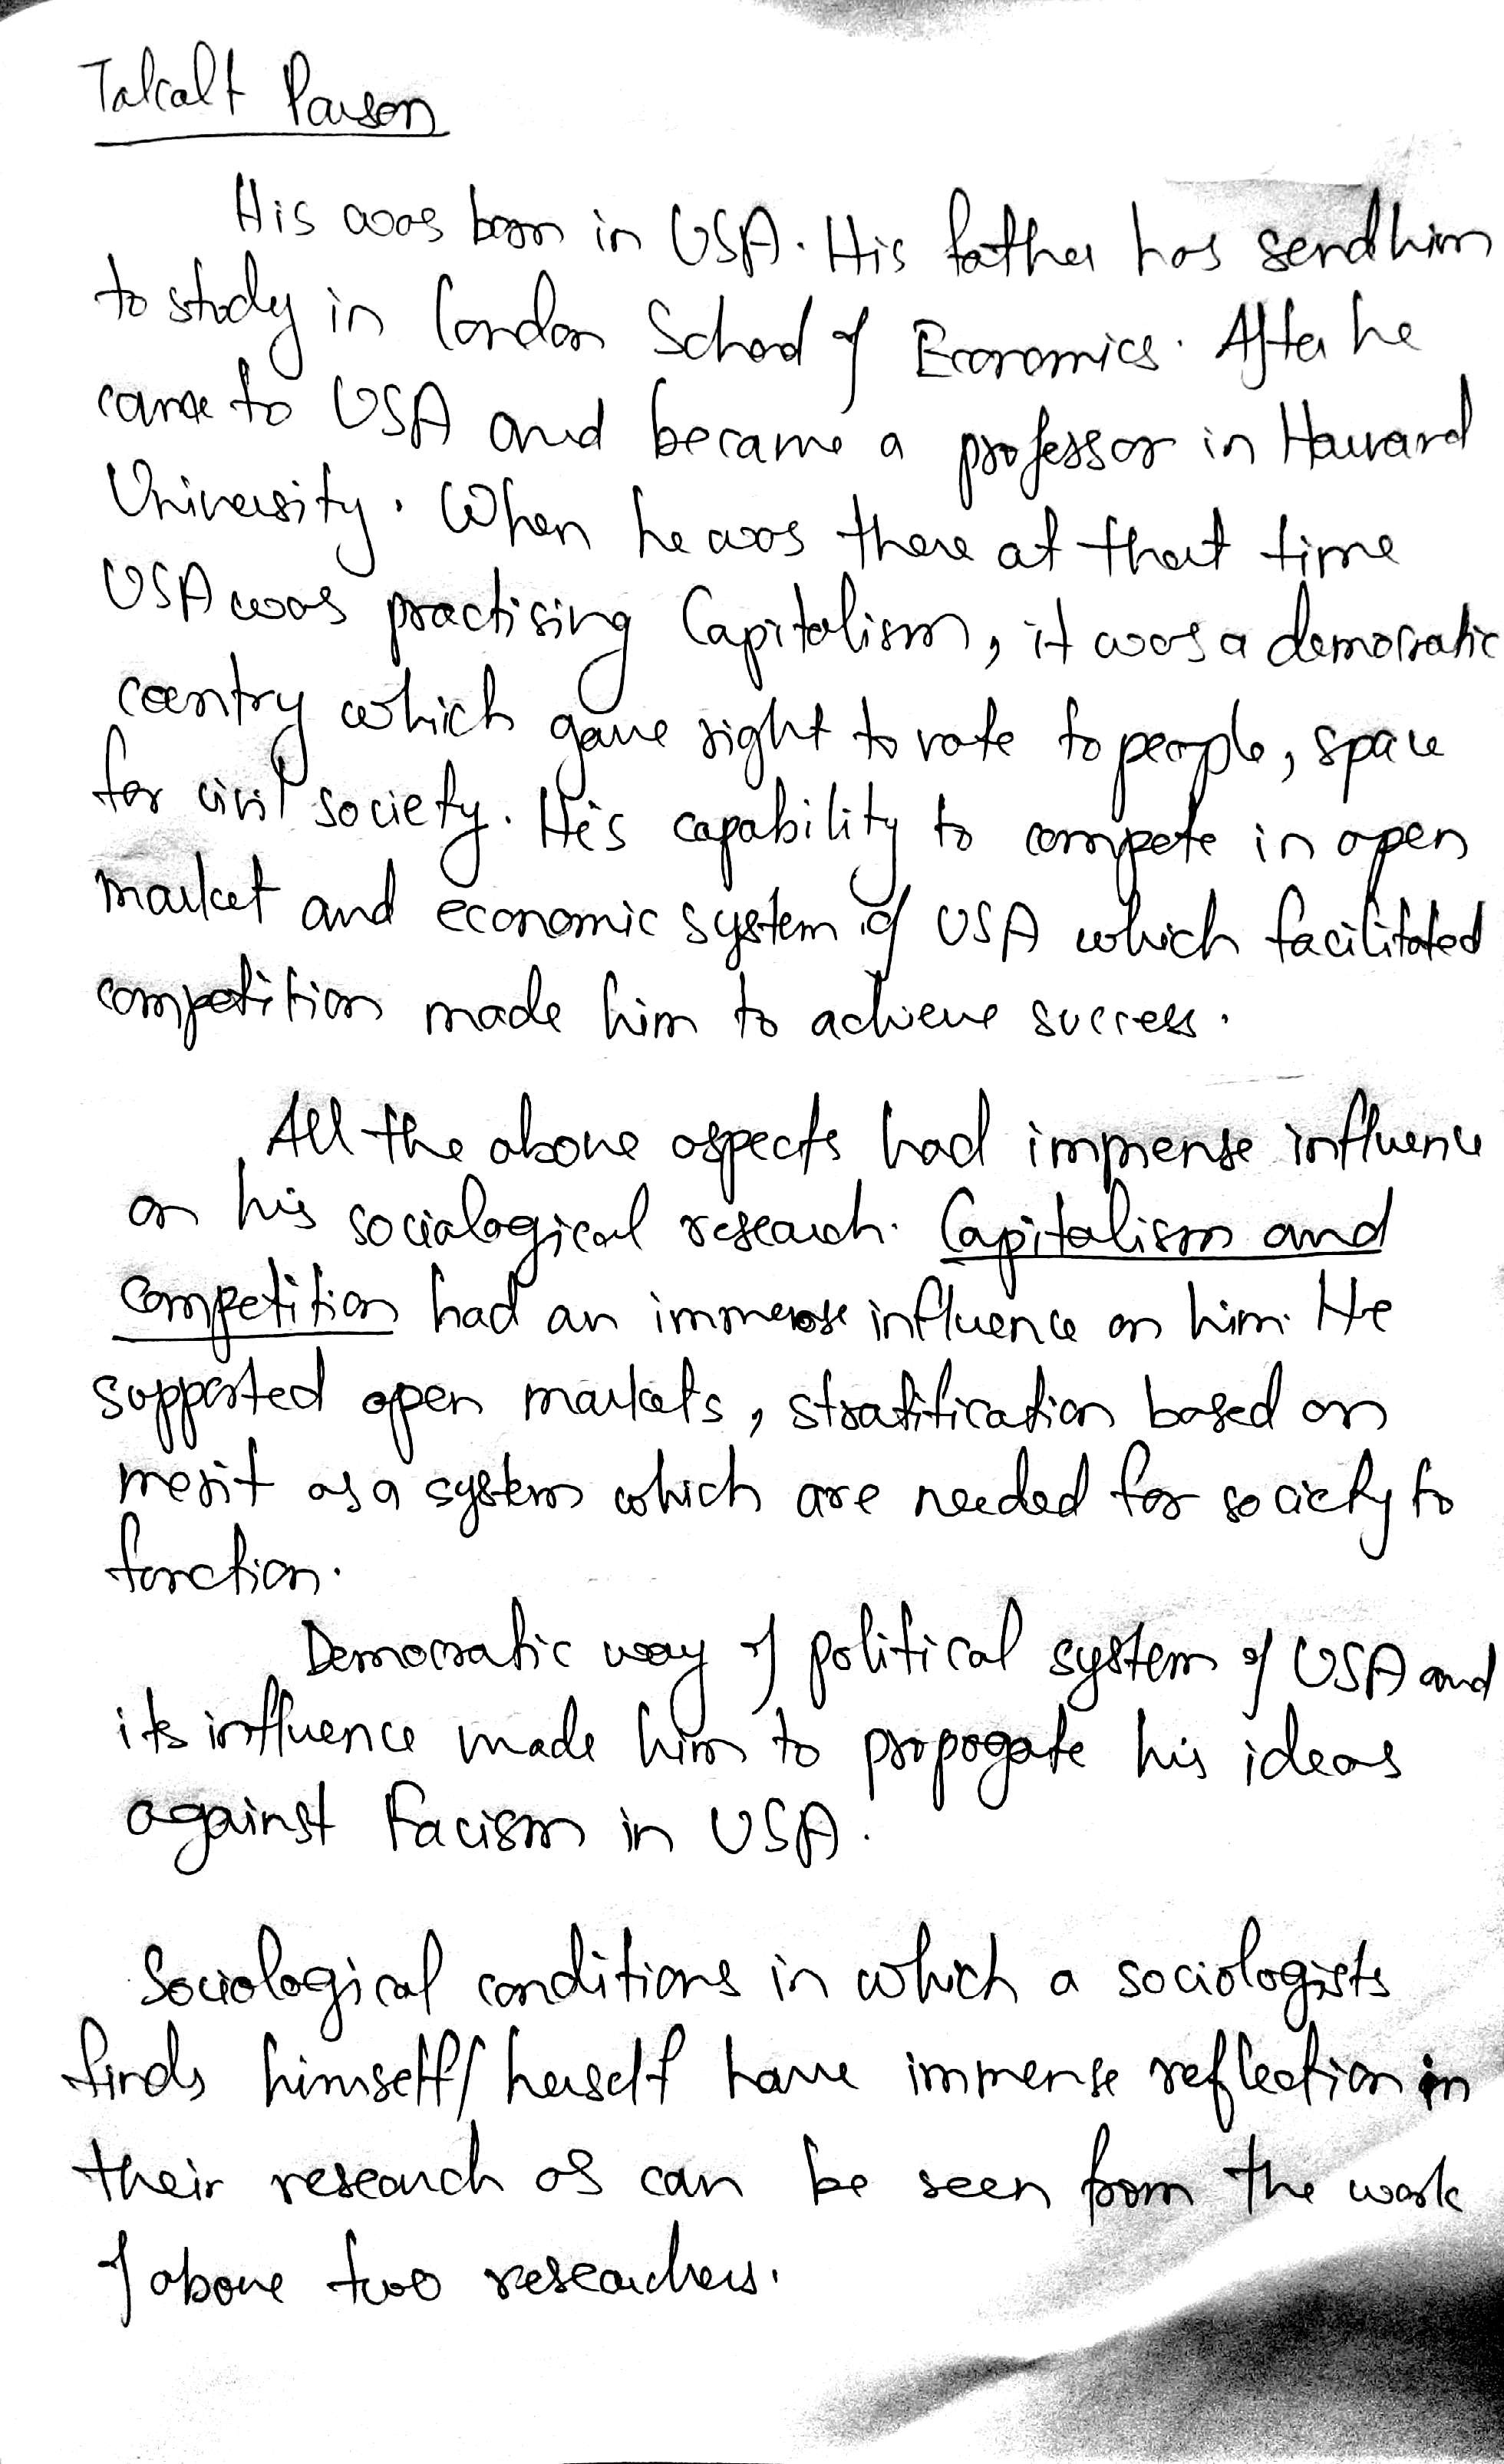 Talcalt Parson
His was born in USA. His father has send him
to study in London School of Economics. After he
came to USA and became a professor in Harvard
University. When he was there at that time
USA was practising Capitalism, it was a democratic
country which gave right to vote to people, space
for civil society. He's capability to compete in open
market and economic system of USA which facilitated
competition made him to achieve success.
All the above aspects had immense influence
on his socialogical research. Capitalism and
Competition had an immense influence on him. He
supported open markets, stratification based on
merit as a system which are needed for society to
function.
Democratic way of political system of USA and
its influence made him to propogate his ideas
against Facism in USA.
Sociological conditions in which a sociologists
finds himself/herself have immense reflection in
their research as can be seen from the work
of above two researchers.